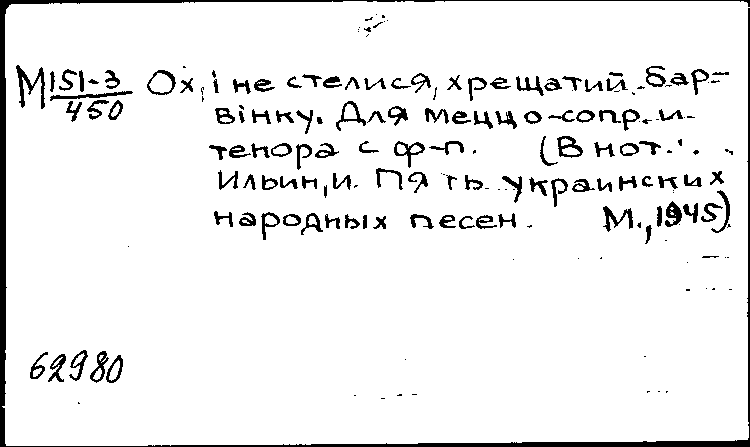 М 151-3 Ох, і не стелися, хрещатий бар-
450 вінку. Для меццо-сопр. и
тенора с ф-п. (В нот.:
Ильин, И. Пять украинских
народных песен. М., 1945)
62980